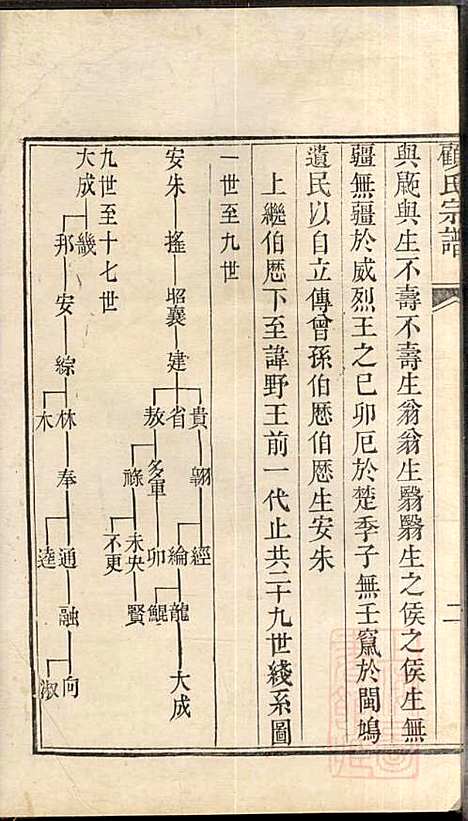 顧氏宗譜
二
與毈與生不壽不壽生翁翁生翳翳生之侯之侯生無
疆無疆於威烈王之巳卯厄於楚季子無壬竄於閩鳩
遺民以自立傳曾孫伯厯伯厯生安朱
上繼伯厯下至諱野王前一代止共二十九世綫系圖
一世至九世
安朱 搖 昭襄 建 貴 翺 經
省 綸 龍 大成
鯤
敖 多軍 卯
祿 未央 賢
不更
九世至十七世
大成 畿
邦 安 綜 林 奉 通 融 向
淑
逵
木